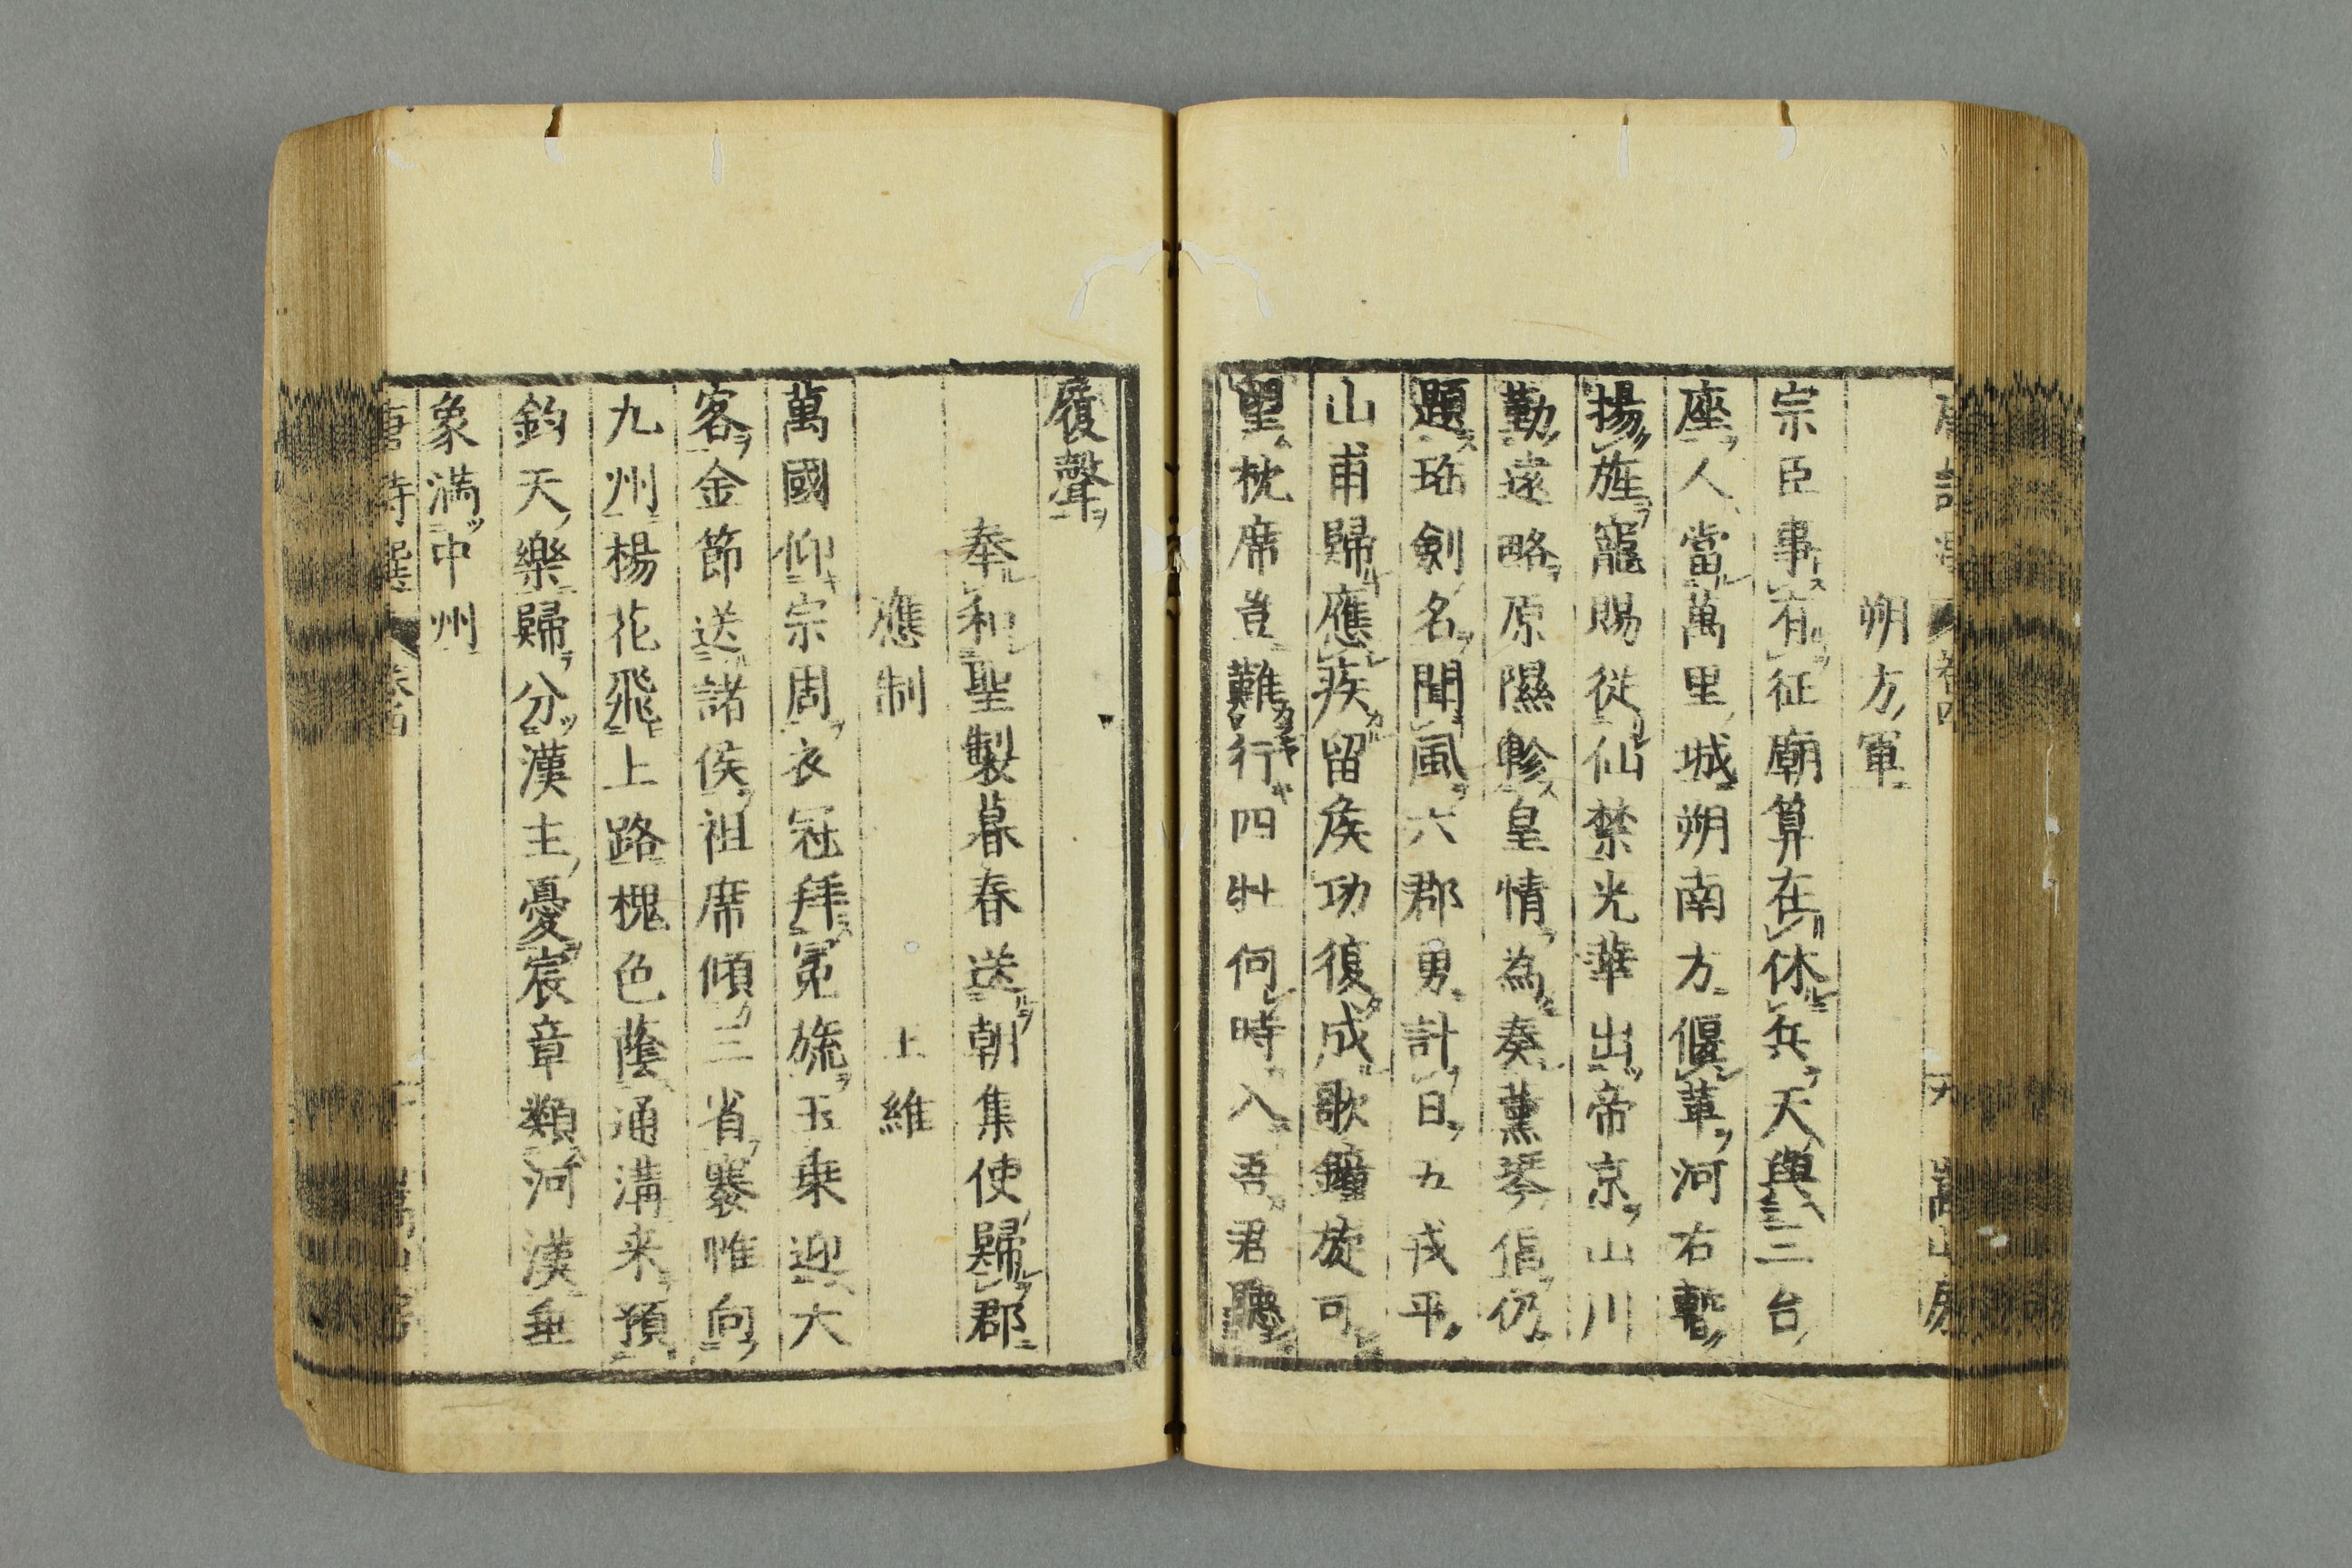 朔方軍
宗臣事有征廟算在休兵天與三台
座人當萬里城朔南方偃革河右暫
揚旌寵賜從仙禁光華出帝京山川
勤遠略原隰軫皇情為奏薫琴倡仍
題珤劍名聞風六郡勇計日五戎平
山甫歸應疾留侯功復成歌鐘旋可
望枕席豈難行四牡何時入吾君聽
履聲
奉和聖製暮春送朝集使歸郡
應制　王維
萬國仰宗周衣冠拜冕旒玉乗迎大
客金節送諸侯祖席傾三省褰帷向
九州楊花飛上路槐色蔭通溝来預
鈞天樂歸分漢主憂宸章類河漢垂
象満中州
唐詩選　卷四